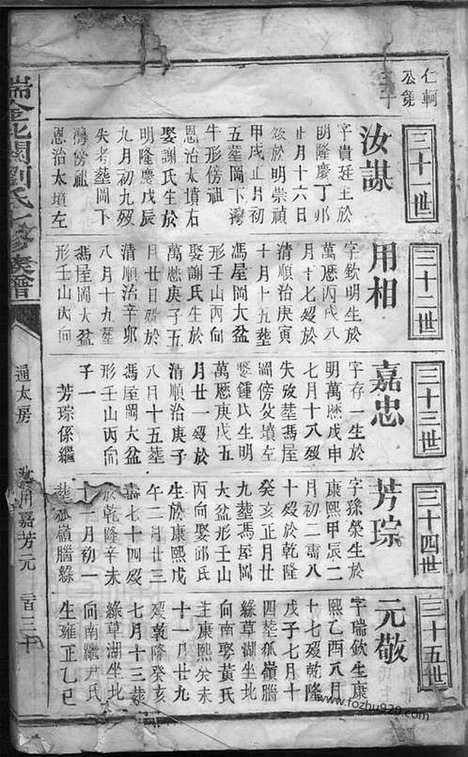 仁軻
公第
三十一世
汝謀
字貴廷生於
明隆慶丁卯
正月十六日
歿於明崇禎
甲戌正月初
五塟岡下灣
牛形傍祖
恩治太墳右
娶謝氏生於
明隆慶戊辰
九月初九歿
失考塟岡下
灣傍祖
恩治太墳左
三十二世
用相
字欽明生於
萬厯丙戌八
月十七歿於
清順治庚寅
十月十九塟
馮屋岡大盆
形壬山丙向
娶謝氏生於
萬厯庚子五
月廿日歿於
清順治辛卯
八月十九塟
馮屋岡大盆
形壬山丙向
三十三世
嘉忠
字存一生於
明萬厯戊申
七月十八歿
失攷塟馮屋
岡傍父墳左
娶鍾氏生明
萬厯庚戌五
月廿一歿於
清順治庚子
八月十五塟
馮屋岡大盆
形壬山丙向
子一
芳琮係繼
三十四世
芳琮
字孫榮生於
康熙甲辰二
月初二需八
十歿於乾隆
癸亥正月廿
九塟馮屋岡
大盆形壬山
丙向娶邱氏
生於康熙戊
午二月廿三
壽七十四歿
於乾隆辛未
十一月初一
塟狐嶺腦綠
三十五世
元敬
字瑞敏生康
熙乙酉八月
十七歿乾隆
戊子七月十
四塟狐嶺腦
綠草湖坐北
向南娶黃氏
生康熙癸未
十一月廿九
歿乾隆癸亥
七月十三塟
綠草湖坐北
向南繼尹氏
生雍正乙巳
瑞金北關劉氏七修族譜
通太房
汝用嘉芳元
二百三十
www.fozhu920.com